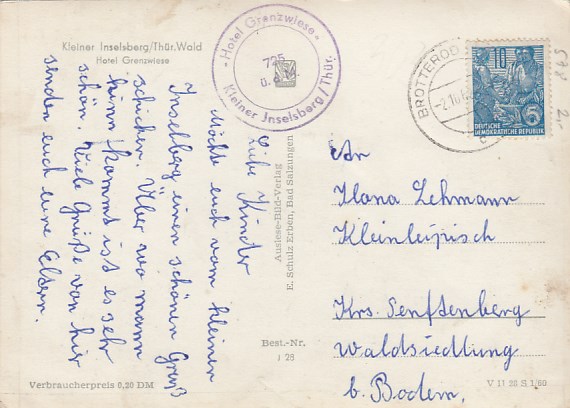 Kleiner Inselsberg/Thür. Wald
Hotel Grenzwiese
Hotel Grenzwiese
725
ü. d. M.
Kleiner Jnselsberg/Thür.
BROTTEROD
-2.10.6
c
10
5
DEUTSCHE
DEMOKRATISCHE REPUBLIK
578 2.-
Liebe Kinder
Möchte euch vom kleinen
Inselberg einen schönen Gruß
schicken. Über wo mann
hinn kommt ist es sehr
schön. Viele Grüße von hier
senden euch eure Eltern.
Auslese-Bild-Verlag
E. Schulz Erben, Bad Salzungen
An
Ilona Lehmann
Kleinleipisch
Krs. Senftenberg
Waldsiedlung
b. Bodem.
Best.-Nr.
J 28
Verbraucherpreis 0,20 DM
V 11 28 S 1/60